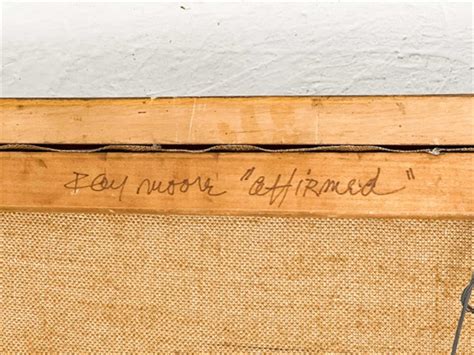 Ray Moore "affirmed"